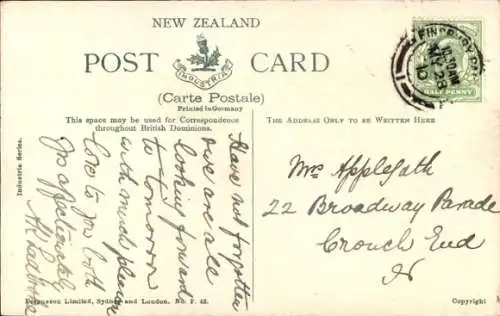 NEW ZEALAND
POST CARD
INDUSTRIA
(Carte Postale)
Printed in Germany
This space may be used for Correspondence
throughout British Dominions.
THE ADDRESS ONLY TO BE WRITTEN HERE
Industria Series.
Have not forgotten
we are all
looking forward
to tomorrow
with much pleasure
Love to you both
Yr affectionate
Mrs Applegath
22 Broadway Parade
Crouch End
N
HALF PENNY
Fergusson Limited, Sydney and London. No. F. 42.
Copyright